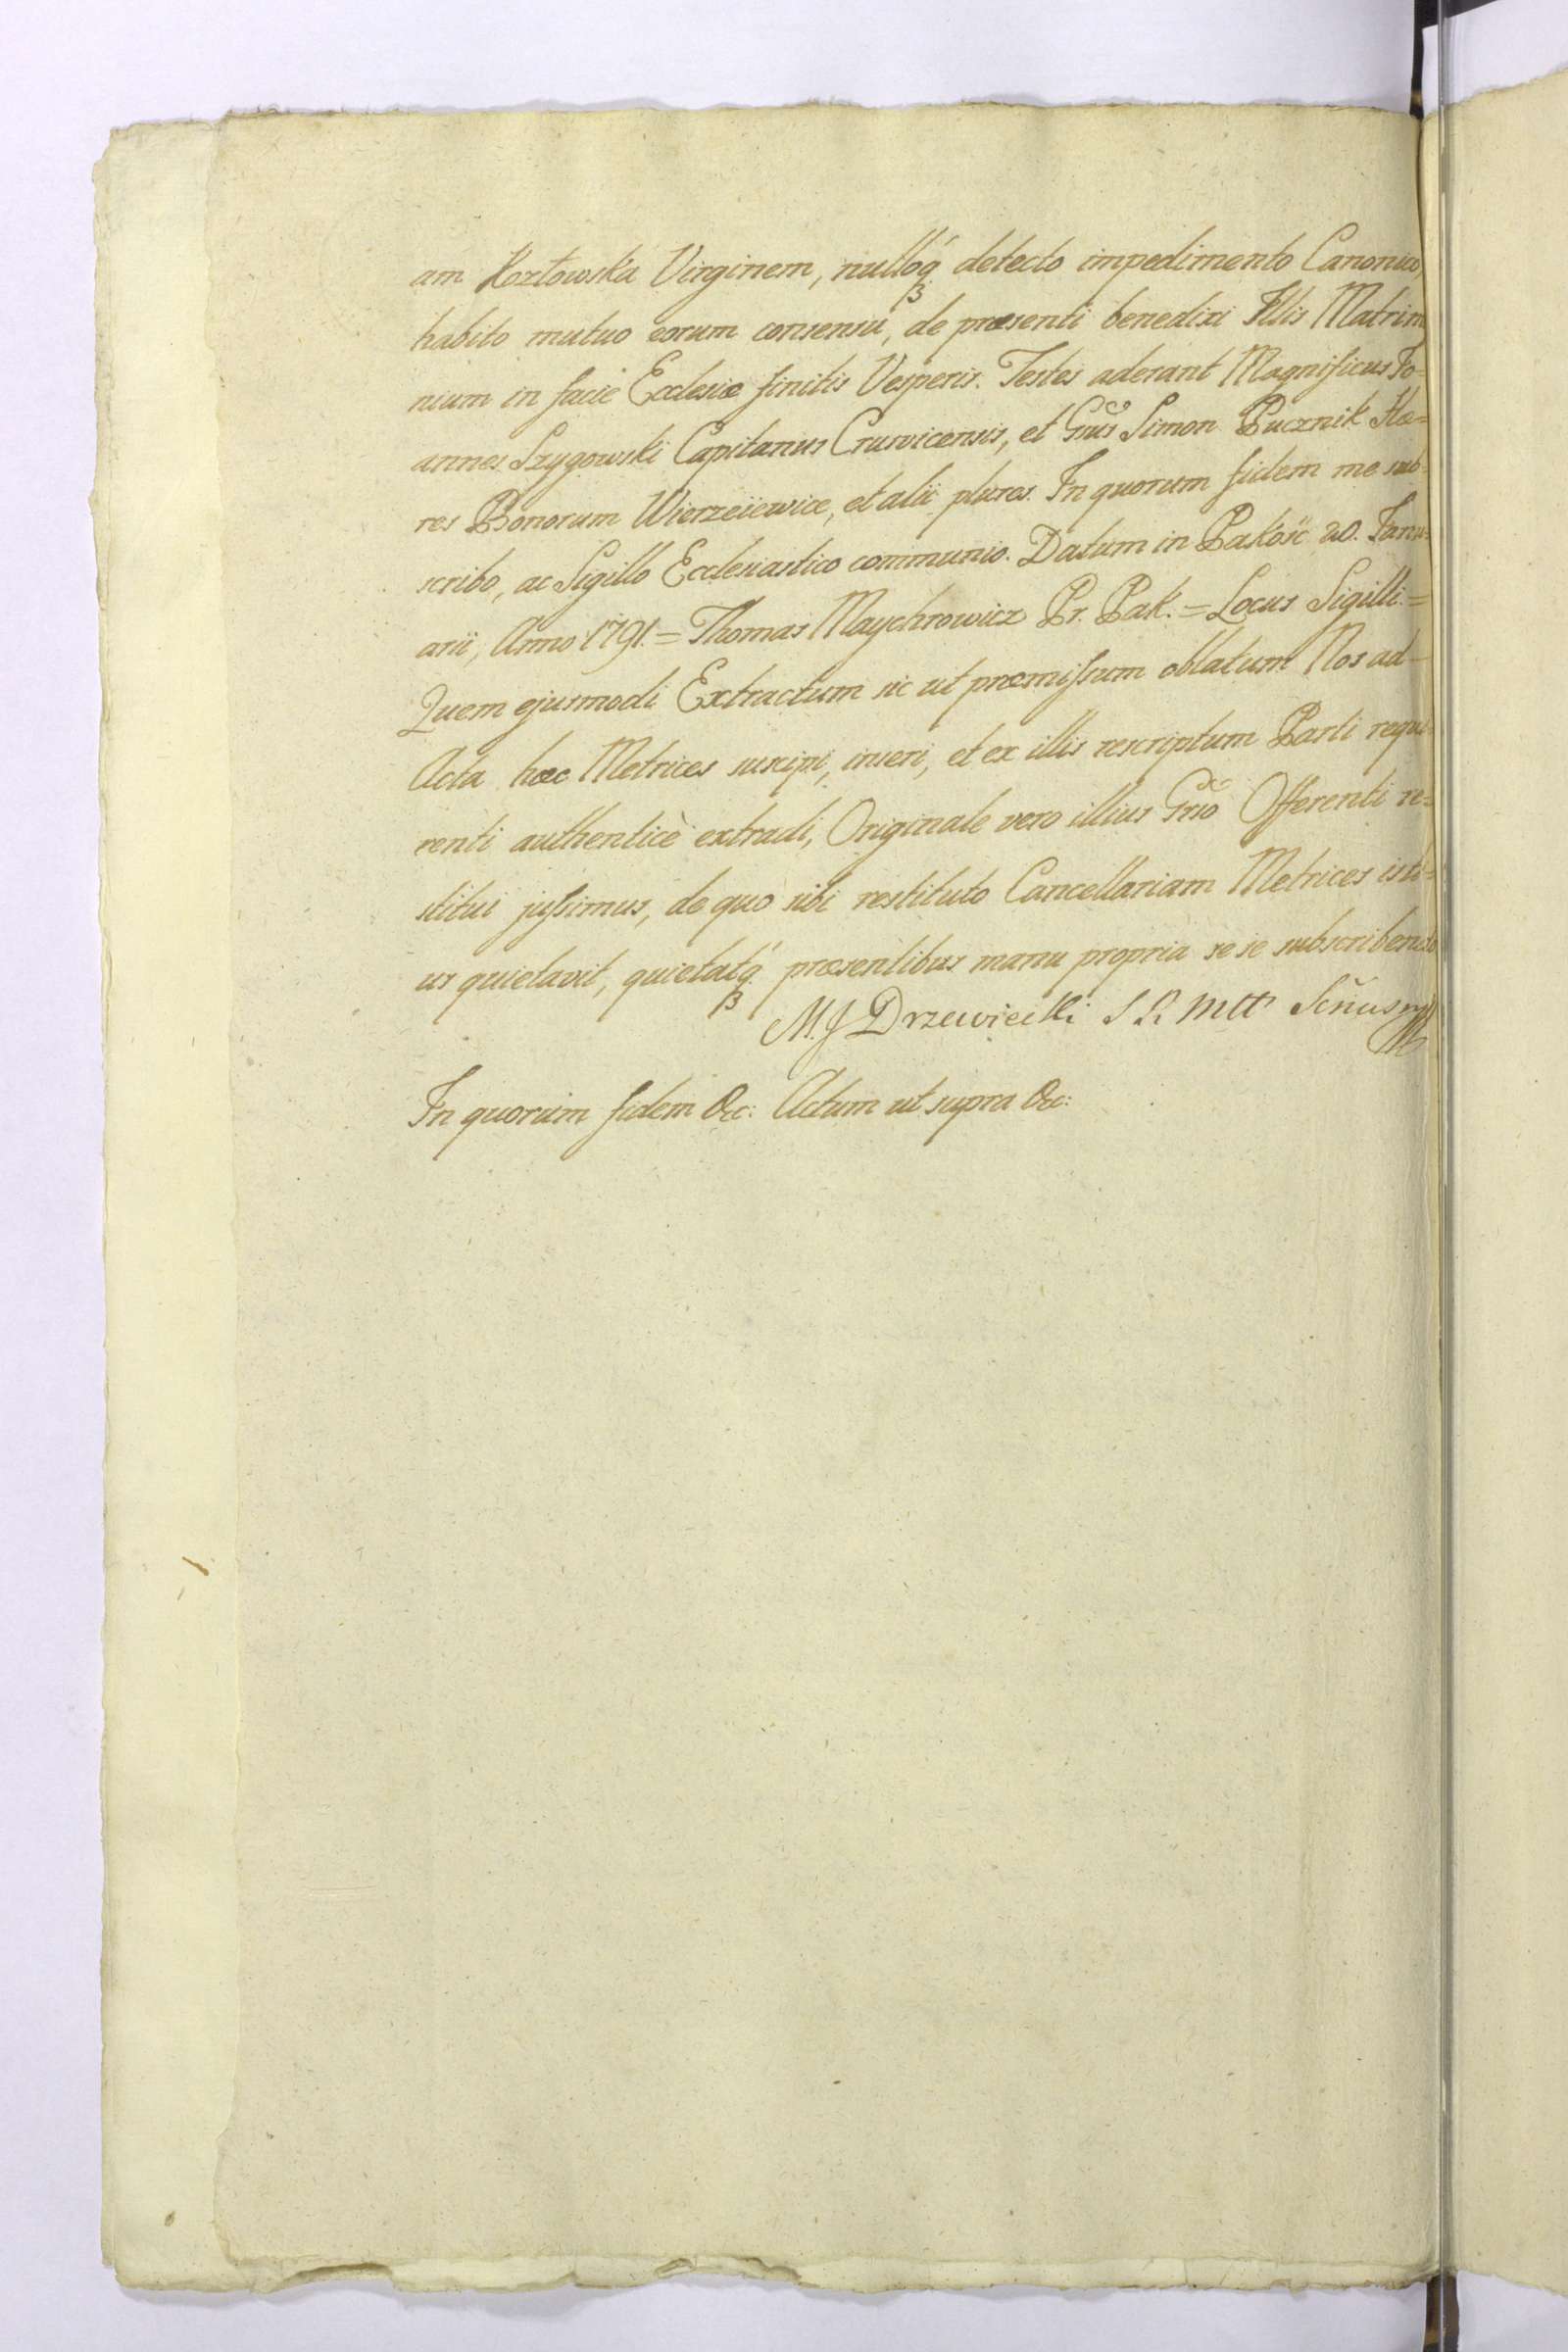 am Kozłowska Virginem, nulloq́ꝫ detecto impedimento Canonico
habito mutuo eorum consensu, de præsenti benedixi Illis Matrimo
nium in facie Ecclesiæ finitis Vesperis. Testes aderant Magnificus Jo=
annes Szygowski Capitanus Crusvicensis, et Gñus Simon Pucznik Hæ=
res Bonorum Wierzeiewice, et alii plures. In quorum fidem me sub=
scribo, ac Sigillo Ecclesiastico communio. Datum in Pakość 20. Janu=
arii, Anno 1791. = Thomas Maychrowicz Pr. Pak. = Locus Sigilli. =
Quem ejusmodi Extractum sic ut præmissum oblatum Nos ad
Acta hæc Metrices suscipi, inseri, et ex illis rescriptum Parti requi=
renti authenticè extradi, Originale vero illius Gñso Offerenti re=
stitui jussimus, de quo sibi restituto Cancellariam Metrices isti=
us quietavit, quietatq́ꝫ præsentibus manu propria se se subscribendo
M. J Drzewiecki S R Mtt Scñus
In quorum fidem &c: Actum ut supra &c: